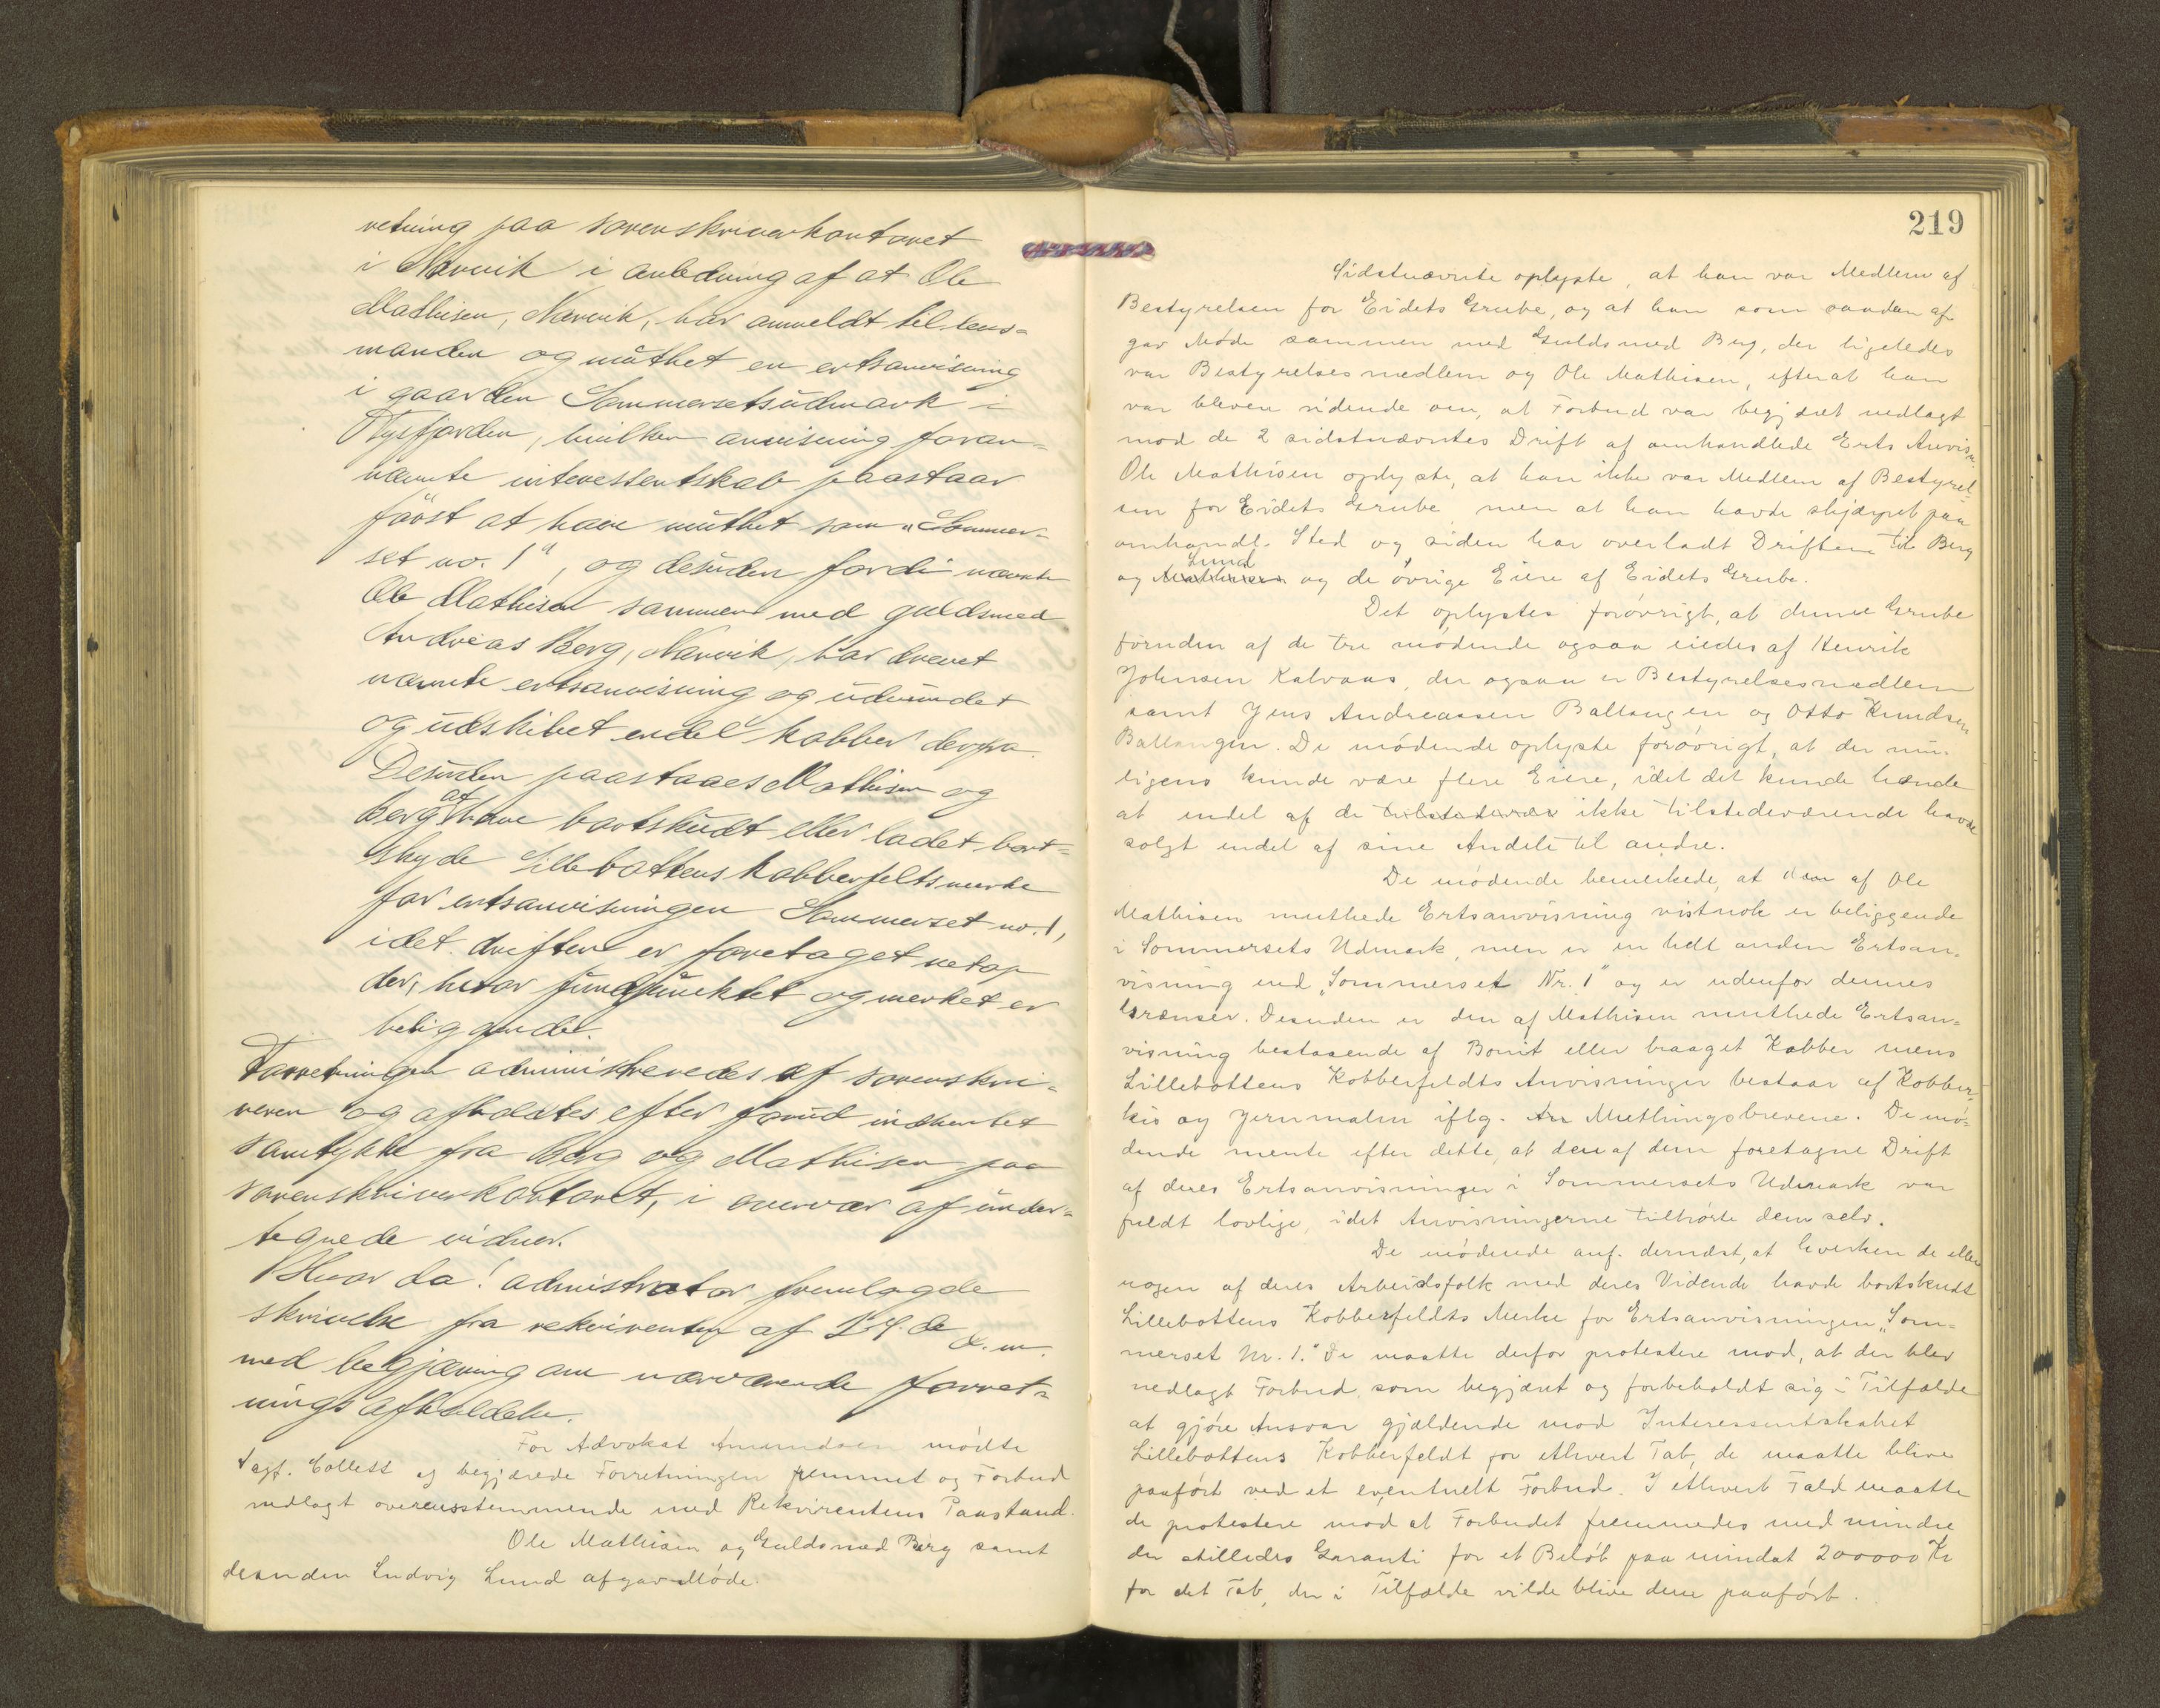 retning paa sorenskriverkontoret
i Narvik i anledning af at Ole
Mathisen, Narvik, har anmeldt til lens=
manden og müthet en ertsanvisning
i gaarden Sommersetsüdmark i
Tysfjorden, hvilken anvisning foran=
nævnte interessentskab paastaar
först at have müthet som "Sommer-
set no. 1", og desüden fordi nævnte
Ole Mathisen sammen med guldsmed
Andreas Berg, Narvik, har drevet
nævnte ertsanvisning og üdvündet
og üdskibet endel kobber derpa.
Desüden paastaaes Mathisen og
Berg at have bortskudt eller ladet bort=
skyde Lillebottens kobberfeltsmerke
for ertsanvisningen Sommerset no. 1,
idet driften er foretaget netop
der, hvor fundpünktet og merket er
beliggende.
Forretningen administreredes af sorenskri=
veren og afholdtes efter forud indhentet
samtykke fra Berg og Mathisen paa
sorenskriverkontoret, i overvær af ünder=
tegnede vidner.
Hvor da! administrator fremlagde
skrivelse fra rekvirenten af 24. de d. m.
med begjæring om nærværende forret=
nings afholdelse.
For Advokat Amundsen mødte
Sagf. Collett og begjærede Forretningen fremmet og Forbud
nedlagt overensstemmende med Rekvirentens Paastand.
Ole Mathisen og Guldsmed Berg samt
desuden Ludvig Lund afgav Møde.
219
Sidstnævnte oplyste, at han var Medlem af
Bestyrelsen for Eidets Grube, og at han som saadan af-
gav Møde sammen med Guldsmed Berg, der ligeledes
var Bestyrelsesmedlem og Ole Mathisen, efterat han
var bleven vidende om, at Forbud var begjæret nedlagt
mod de 2 sidstnævntes Drift af omhandlede Erts Anvisn.
Ole Mathisen oplyste, at han ikke var Medlem af Bestyrel-
sen for Eidets Grube men at han havde skjærpet paa
omhandl. Sted og siden har overladt Driften til Berg
og Mathisen Lund og de øvrige Eiere af Eidets Grube.
Det oplystes forøvrigt, at denne Grube
foruden af de tre mødende ogsaa eiedes af Henrik
Johnsen Kalvaas, der ogsaa er Bestyrelsesmedlem
samt Jens Andreassen Ballangen og Otto Knudsen
Ballangen. De mødende oplyste forøvrigt, at der mu-
ligens kunde være flere Eiere, idet det kunde hænde
at endel af de tilstedevær ikke tilstedeværende havde
solgt endel af sine Andele til andre.
De mødende bemerkede, at den af Ole
Mathisen muthede Ertsanvisning vistnok er beliggende
i Sommersets Udmark, men er en helt anden Ertsan-
visning end "Sommerset Nr. 1" og er udenfor dennes
Grænser. Desuden er den af Mathisen muthede Ertsan=
visning bestaaende af Bornit eller braaget Kobber mens
Lillebottens Kobberfeldts Anvisninger bestaar af Kobber-
kis og Jernmalm iflg. An Muthingsbrevene. De mø-
dende mente efter dette, at den af dem foretagne Drift
af deres Ertsanvisninger i Sommersets Udmark var
fuldt lovlige, idet Anvisningerne tilhørte dem selv.
De mødende anf. dernæst, at hverken de eller
nogen af deres Arbeidsfolk med deres Vidende havde bortskudt
Lillebottens Kobberfeldts Merke for Ertsanvisningen "Som=
merset Nr. 1." De maatte derfor protestere mod, at der blev
nedlagt Forbud, som begjæret og forbeholdt sig i Tilfælde
at gjøre Ansvar gjældende mod Interessentskabet
Lillebottens Kobberfeldt for ethvert Tab, de maatte blive
paaført ved et eventuelt Forbud. I ethvert Fald maatte
de protestere mod at Forbudet fremmedes med mindre
der stilledes Garanti for et Beløb paa mindst 200000 Kr
for det Tab, der i Tilfælde vilde blive dem paaført.